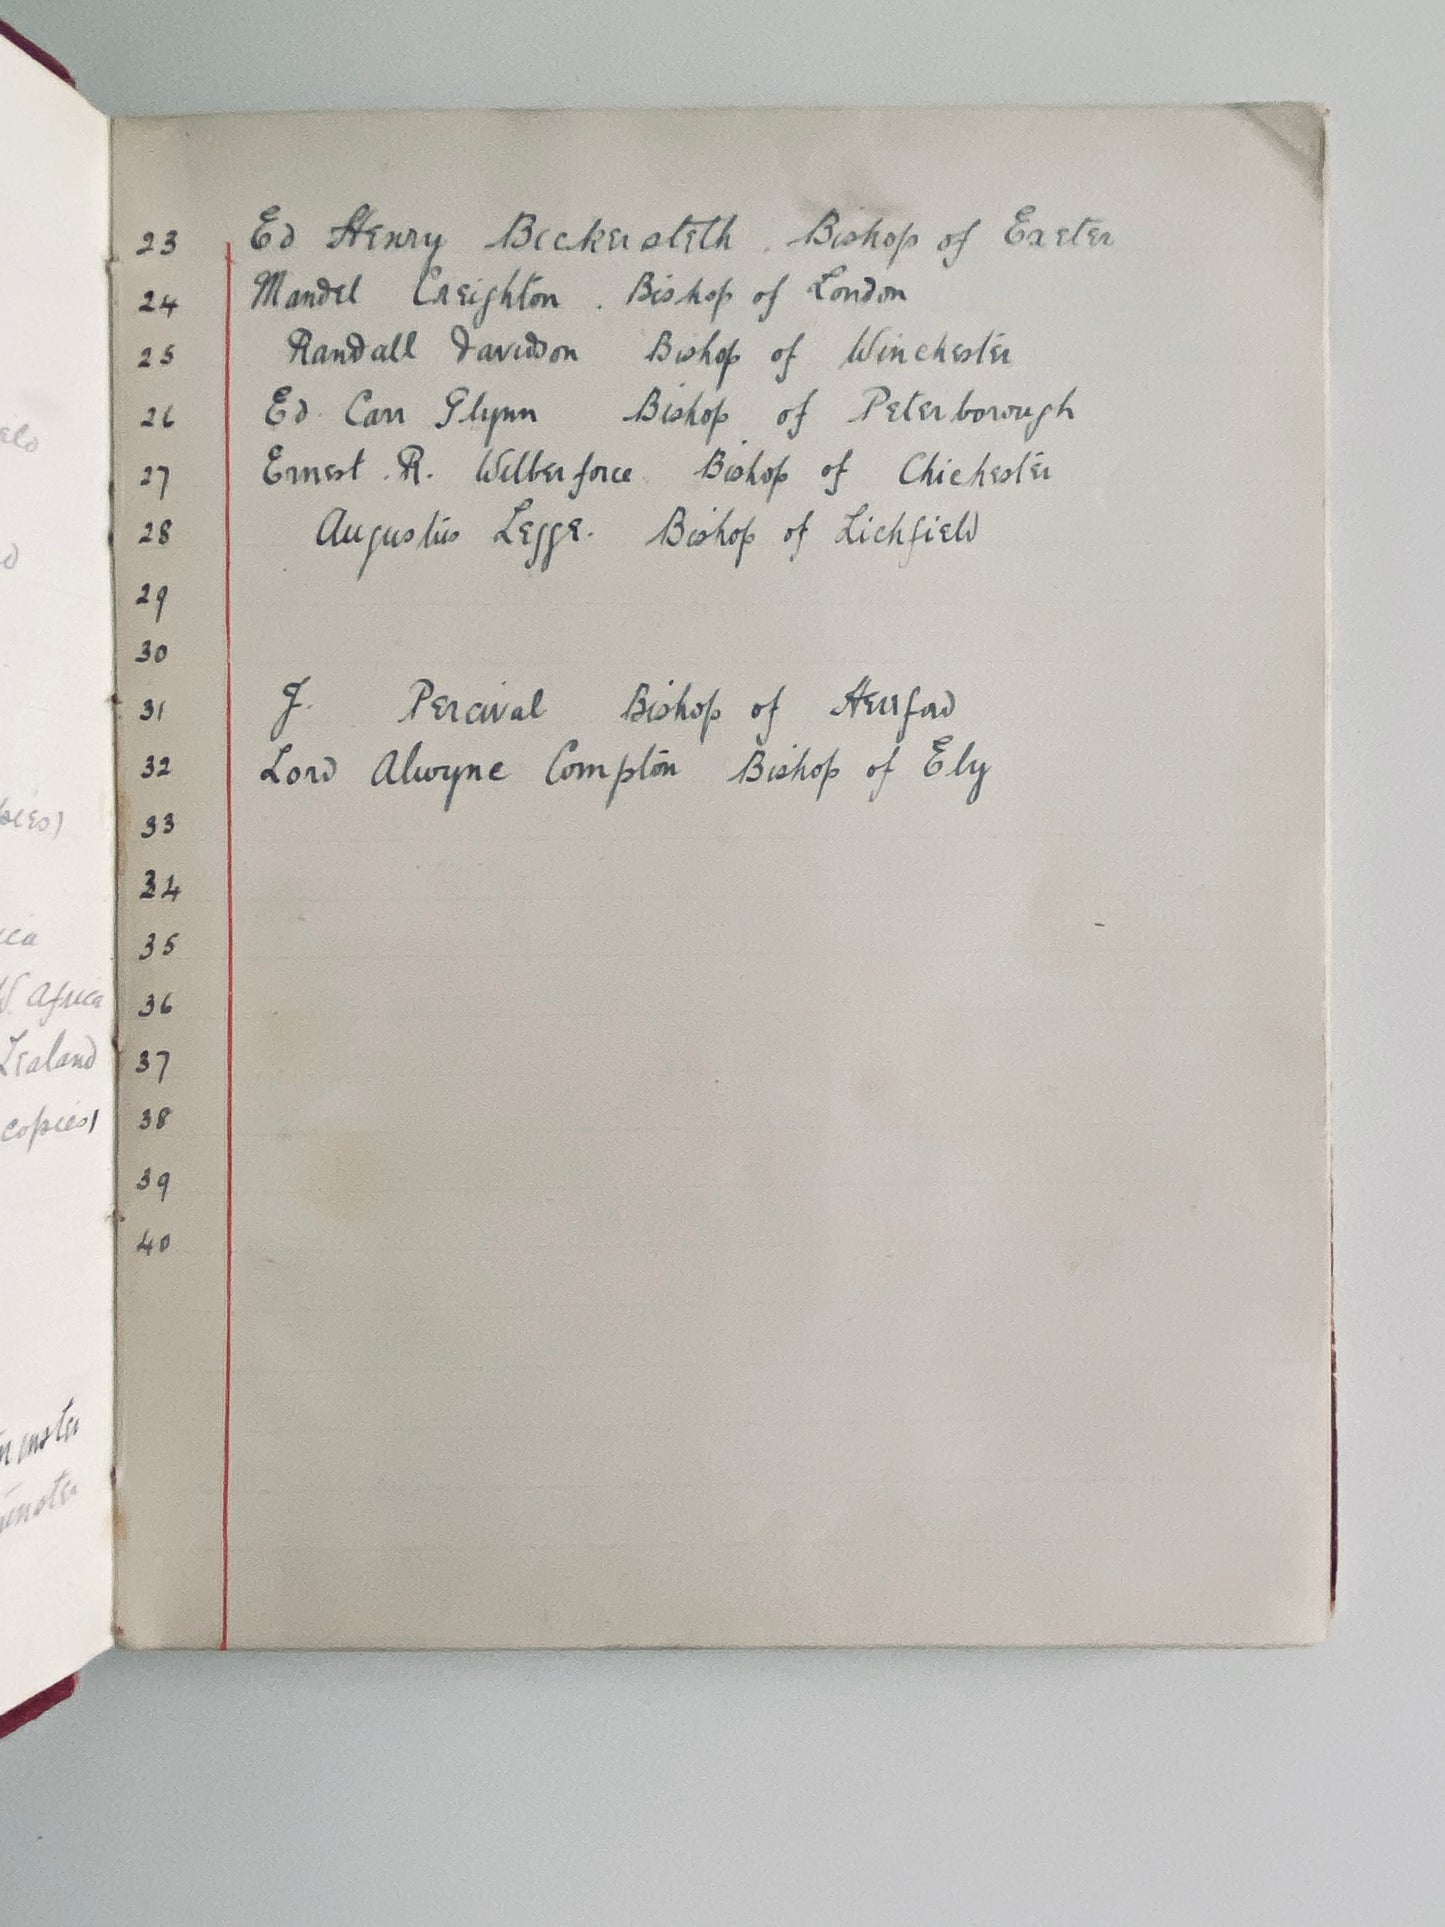 23 Ed Henry Bickersteth . Bishop of Exeter
24 Mandel Creighton . Bishop of London
25 Randall Davidson Bishop of Winchester
26 Ed. Carr Glynn Bishop of Peterborough
27 Ernest . R. Wilberforce. Bishop of Chichester
28 Augustus Legge. Bishop of Lichfield
29
30
31 J. Percival Bishop of Herrford
32 Lord Alwyne Compton Bishop of Ely
33
34
35
36
37
38
39
40
W. Africa
Zealand
copies)